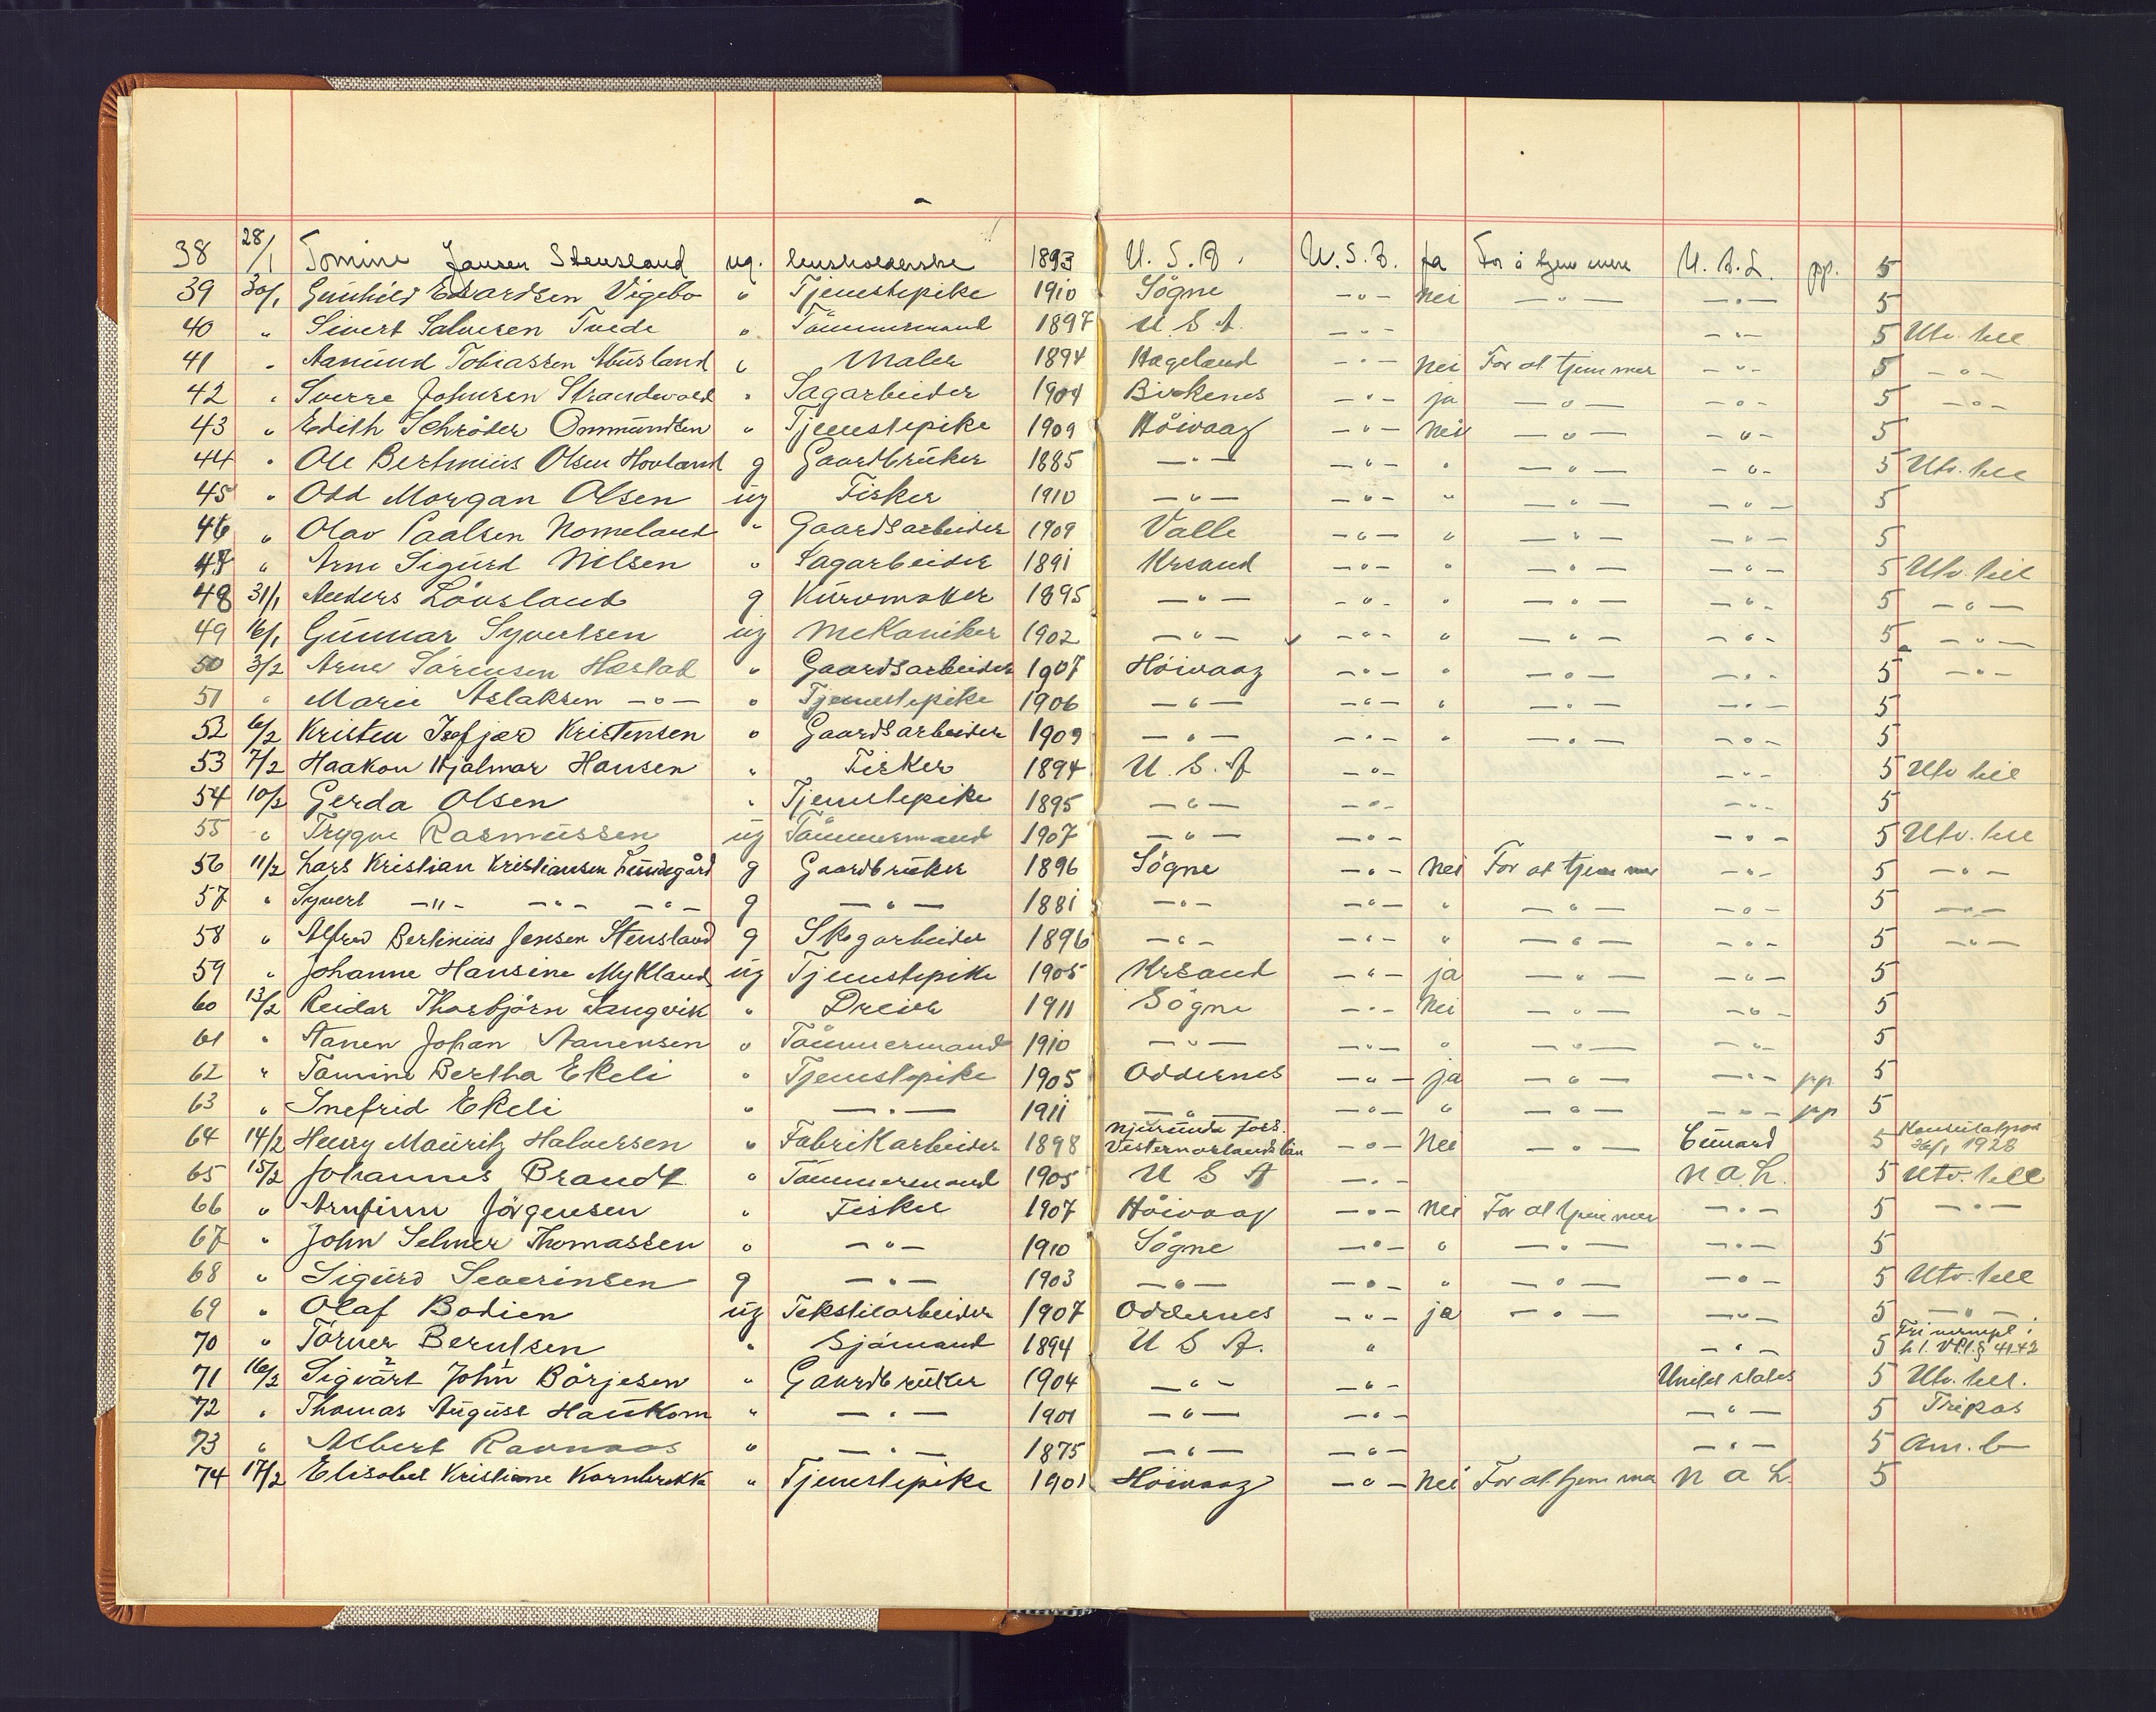 38 28/1 Tomine Jansen Stensland ug. husholderske 1893 U.S.A. U.S.A. ja For å tjene mere N.A.L. pp. 5
39 30/1 Gunhild Edvardsen Vigebo " Tjenestepike 1910 Sögne -"- Nei -"- -"- 5
40 " Sivert Salvesen Tvede " Tömmermand 1897 U S A. -"- -"- 5 Utv. till
41 " Aanund Tobiassen Abusland " Maler 1894 Hægeland -"- Nei For at tjene mer -"- 5 -"-
42 " Sverre Johnsen Strandevold " Sagarbeider 1904 Birkenes -"- ja -"- -"- 5 -"-
43 " Edith Schröder Ommundsen " Tjenestepike 1909 Höivaag -"- Nei -"- -"- 5
44 " Ole Bertinius Olsen Hovland g Gaardbruker 1885 -"- -"- " -"- -"- 5 Utv. till
45 " Odd Morgan Olsen ug Fisker 1910 -"- -"- " -"- -"- 5
46 " Olav Paalsen Nomeland " Gaardsarbeider 1909 Valle -"- " -"- -"- 5
47 " Arne Sigurd Nilsen " Sagarbeider 1891 Krsand -"- " -"- -"- 5 Utv. till
48 31/1 Anders Lövsland g Kurvmaker 1895 -"- -"- " -"- -"- 5 -"-
49 16/1 Gunnar Syvertsen ug Mekaniker 1902 -"- -"- " -"- -"- 5 -"-
50 3/2 Arne Sörensen Hæstad " Gaardsarbeider 1907 Höivaag -"- " -"- -"- 5 -"-
51 " Marie Aslaksen -"- " Tjenestepike 1906 -"- -"- " -"- -"- 5
52 6/2 Kristen Kristensen " Gaardsarbeider 1909 -"- -"- " -"- -"- 5
53 7/2 Haakon Hjalmar Hansen " Fisker 1894 U.S.A -"- -"- 5 Utv till
54 10/2 Gerda Olsen " Tjenestepike 1895 -"- -"- -"- 5
55 " Trygve Rasmussen ug Tömmermand 1907 -"- -"- -"- 5 Utv. till
56 11/2 Lars Kristian Kristiansen Lundegård g Gaardbruker 1896 Sögne -"- Nei For at tjene mer -"- 5 -"-
57 " Syvert -"- -"- -"- g -"- 1881 -"- -"- " -"- -"- 5 -"-
58 " Alfred Bertinius Jensen Stensland g Skogarbeider 1896 -"- -"- " -"- -"- 5 -"-
59 " Johanne Hansine Mykland ug Tjenestepike 1905 Krsand -"- ja -"- -"- 5
60 13/2 Reidar Thorbjörn Langvik " Dreier 1911 Sögne -"- Nei -"- -"- 5
61 " Aanen Johan Aanensen " Tömmermand 1910 -"- -"- " -"- -"- 5
62 " Tomine Bertha Ekeli " Tjenestepike 1905 Oddernes -"- ja -"- -"- pp. 5
63 " Snefrid Ekeli " -"- 1911 -"- -"- " -"- -"- pp 5
64 14/2 Henry Mauritz Halvorsen " Fabrikarbeider 1898 Njurunda förs. Vesternorlands län -"- Nei -"- Cunard 5 Konsulatpas 26/1 1928
65 15/2 Johannes Brandt " Tömmermand 1905 U S A -"- N A L. 5 Utv. till
66 " Arnfinn Jörgensen " Fisker 1907 Höivaag -"- Nei For at tjene mer -"- 5 -"-
67 " John Selmer Thomassen " -"- 1910 Sögne -"- " -"- -"- 5
68 " Sigurd Severinsen g -"- 1903 -"- -"- " -"- -"- 5 Utv. till
69 " Olaf Bodien ug Tekstilarbeider 1907 Oddernes -"- ja -"- -"- 5 -"-
70 " Törner Berntsen " Sjömand 1894 U S A. " -"- 5 § 41.42
71 16/2 Sigvart John Börjesen " Gaardbruker 1904 -"- -"- United states 5 Utv. till.
72 " Thomas August Haukom " -"- 1901 -"- -"- -"- 5 Fripas
73 " Albert Ravnaas " -"- 1875 -"- -"- -"- 5 Am. b
74 17/2 Elisabet Kristiane Kornbrekke " Tjenestepike 1901 Höivaag -"- Nei For at tjene mer N A L. 5